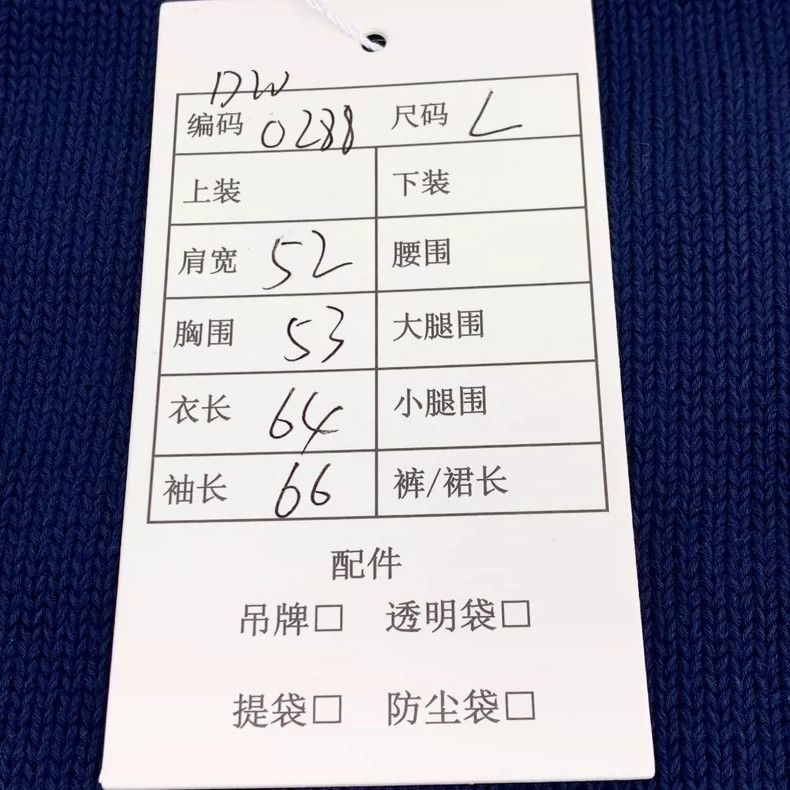 DW
编码 0288 尺码 L
上装 下装
肩宽 52 腰围
胸围 53 大腿围
衣长 64 小腿围
袖长 66 裤/裙长
配件
吊牌□ 透明袋□
提袋□ 防尘袋□